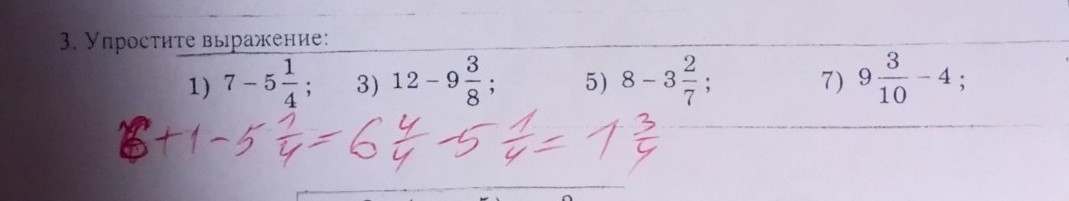 3. Упростите выражение:
1) 7 − 5 1/4; 3) 12 − 9 3/8; 5) 8 − 3 2/7; 7) 9 3/10 − 4;
6 + 1 − 5 1/4 = 6 4/4 − 5 1/4 = 1 3/4